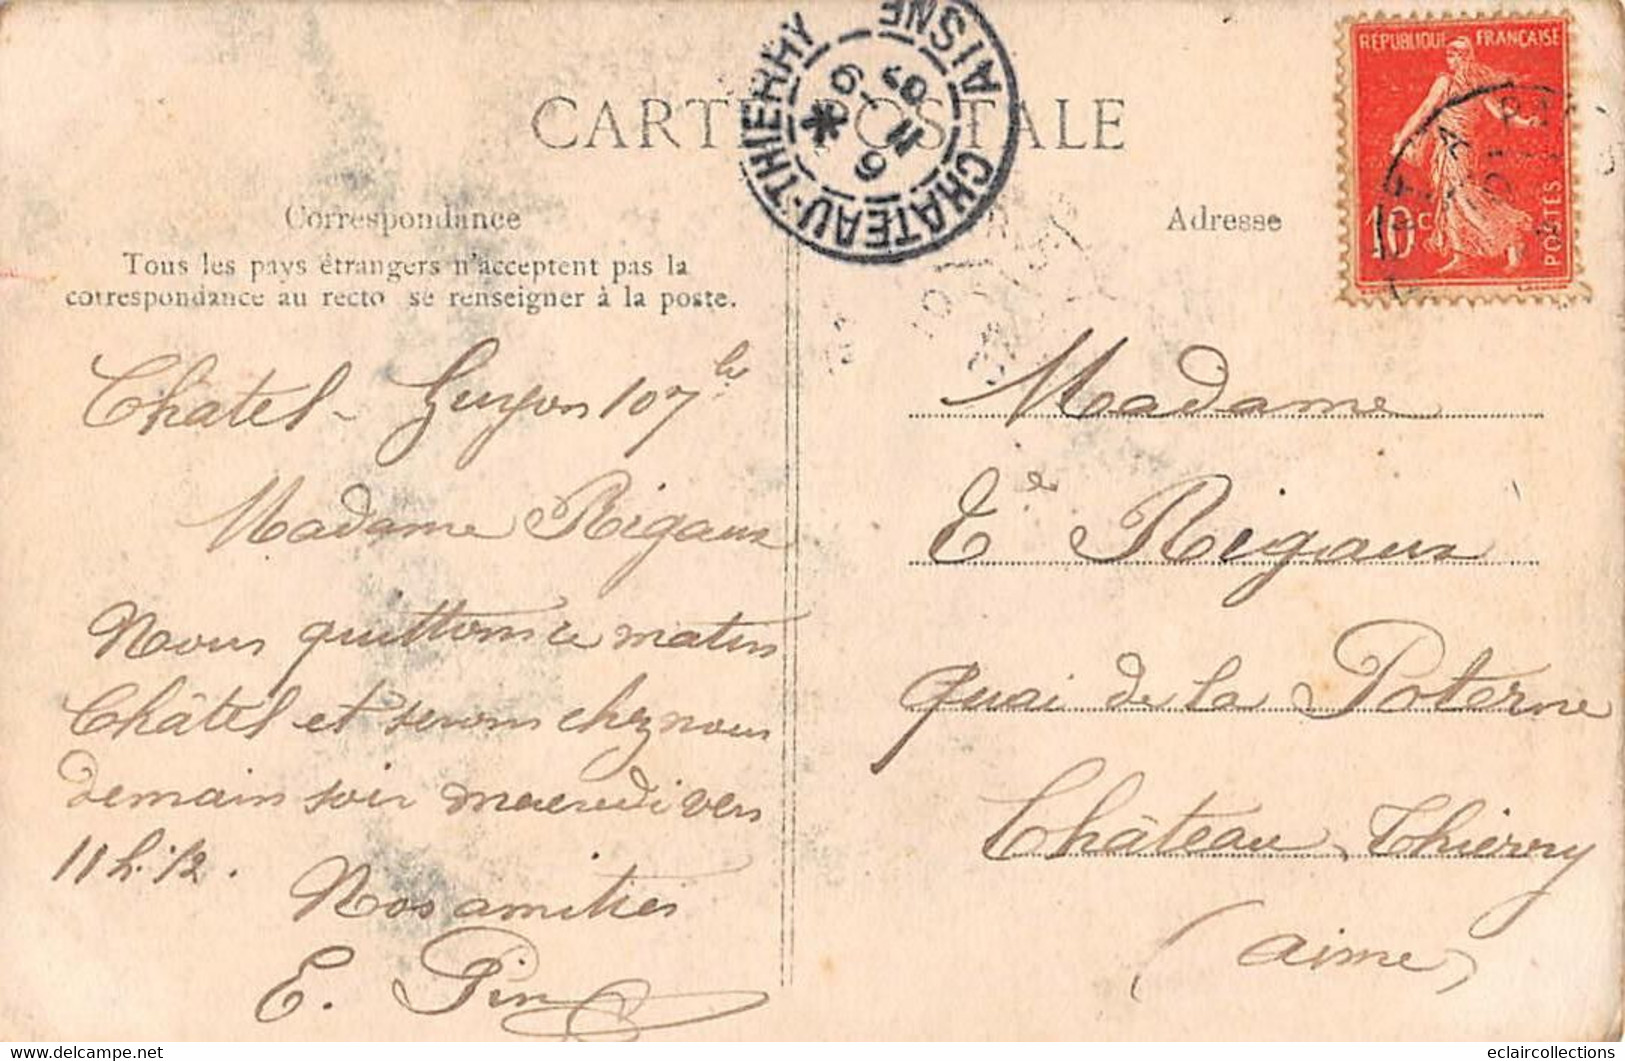 CARTE POSTALE
CHATEAU-THIERRY
AISNE
RÉPUBLIQUE FRANÇAISE
10c
POSTES
Correspondance
Tous les pays étrangers n'acceptent pas la
correspondance au recto se renseigner à la poste.
Châtel-Guyon 10 7bre
Madame Rigaux
Nous quittons ce matin
Châtel et serons chez nous
demain soir mercredi vers
11 h. 1/2.
Nos amitiés
E. Pin
Adresse
Madame
Rigaux
Quai de la Poterne
Château Thierry
(aisne)
eclaircollections